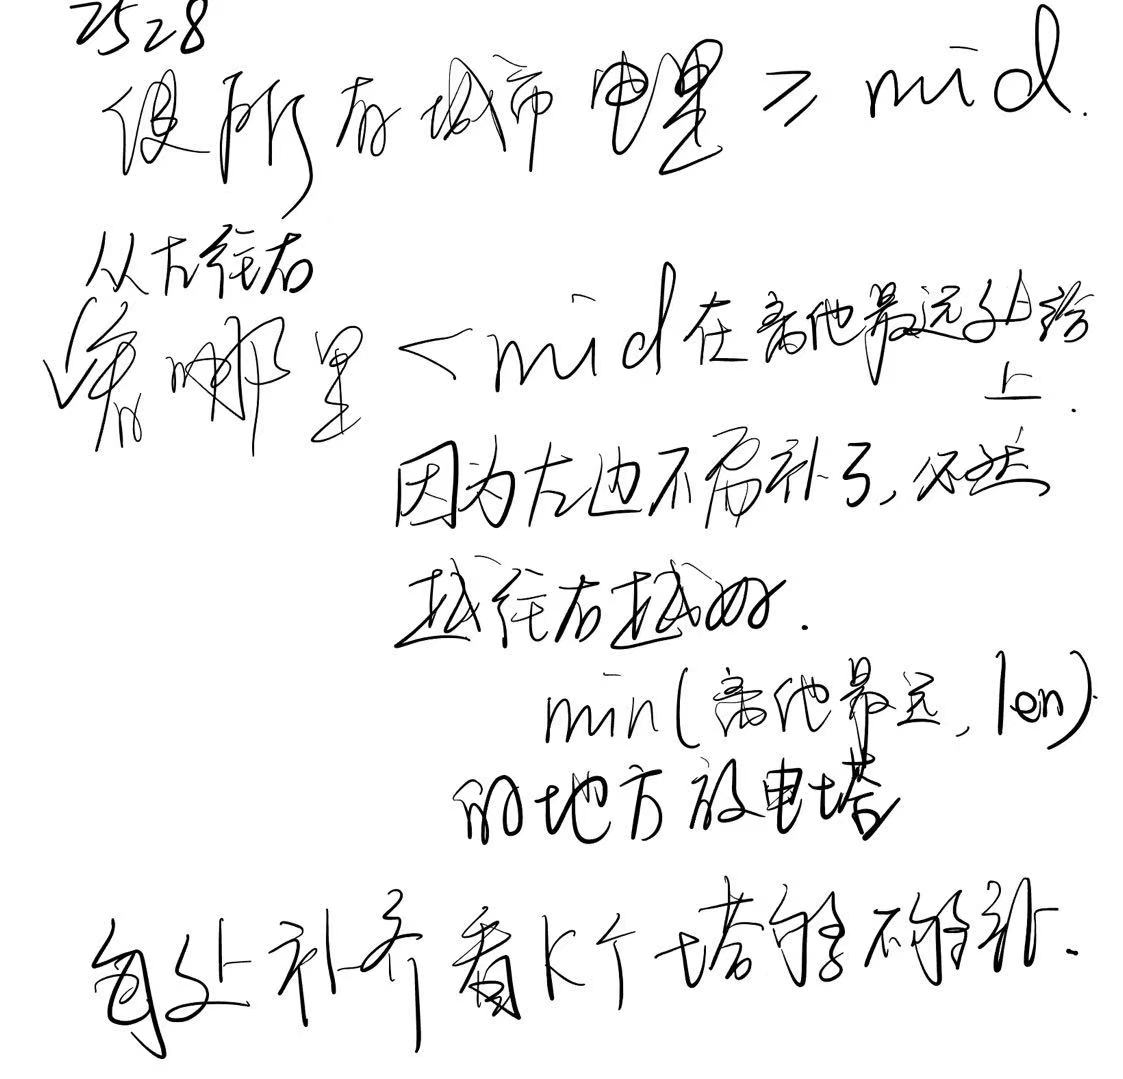 2528
使所有城市电量 ≥ mid.
从左往右
看哪里 < mid 在离他最远处给
上.
因为左边不需补了,必然
越往右越好.
min(离他最远, len)
的地方放电塔
每处补齐看K个塔够不够补.